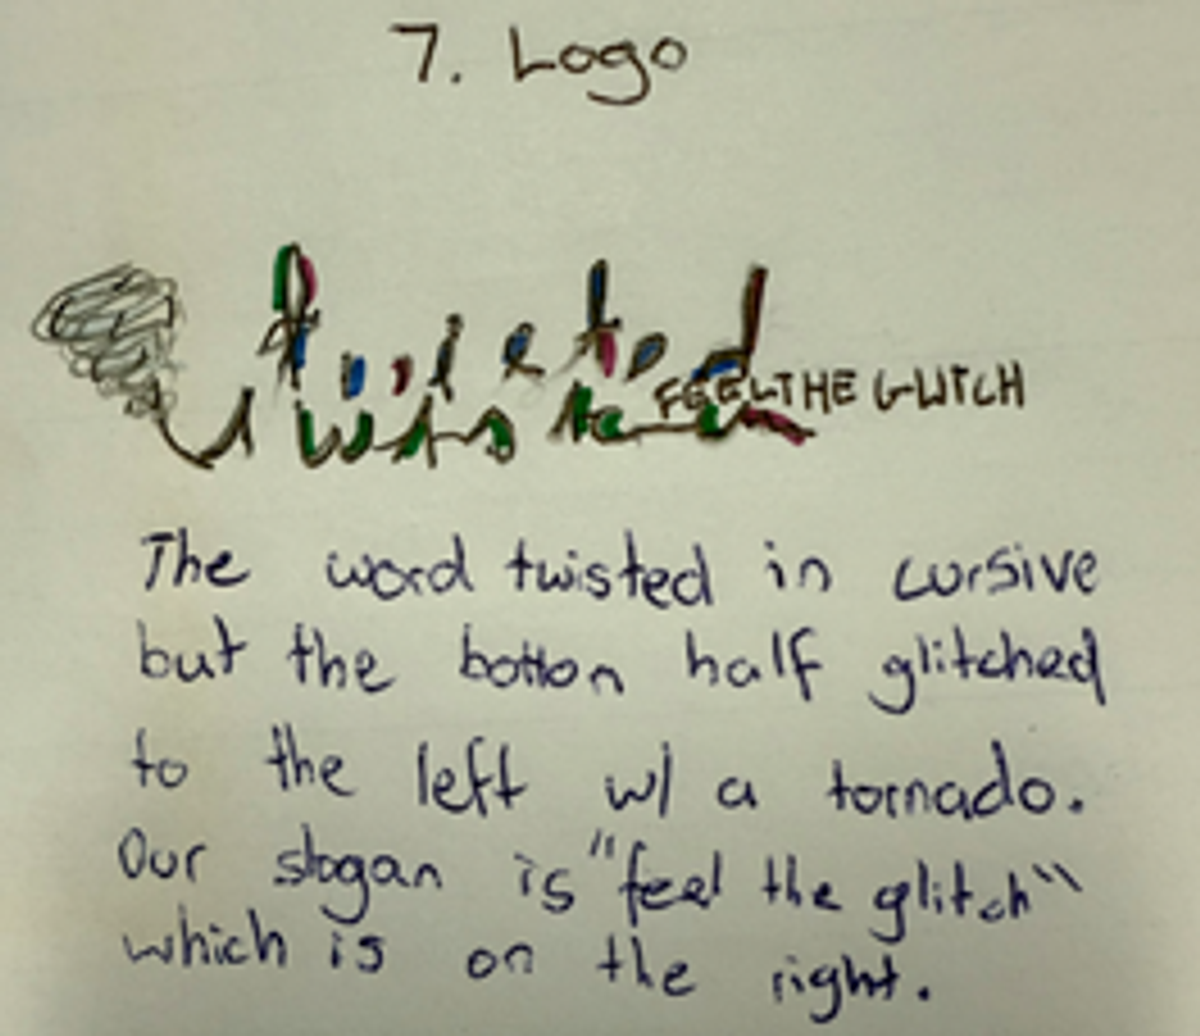 7. Logo
twisted
FEEL THE GLITCH
The word twisted in cursive
but the botton half glitched
to the left w/ a tornado.
Our slogan is "feel the glitch"
which is on the right.